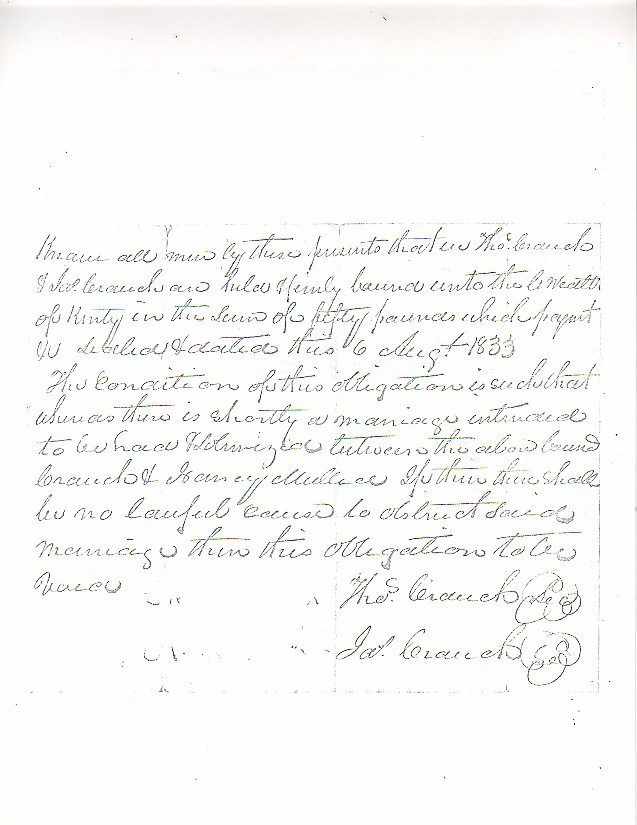 Know all men by these presents that we Thos. Crauch
& Jas. Crauch are held & firmly bound unto the C Wealth
of Knty in the Sum of fifty pounds which paymt
&c Sealed & dated this 6 Augt 1833
The Condition of this obligation is such that
whereas there is shortly a marriage intended
to be had & Solmnized between the above bound
Crauch & Nancy If then there shall
be no lawful cause to obstruct Said
marriage then this obligation to be
Thos. Crauch Seal
Jas. Crauch Seal